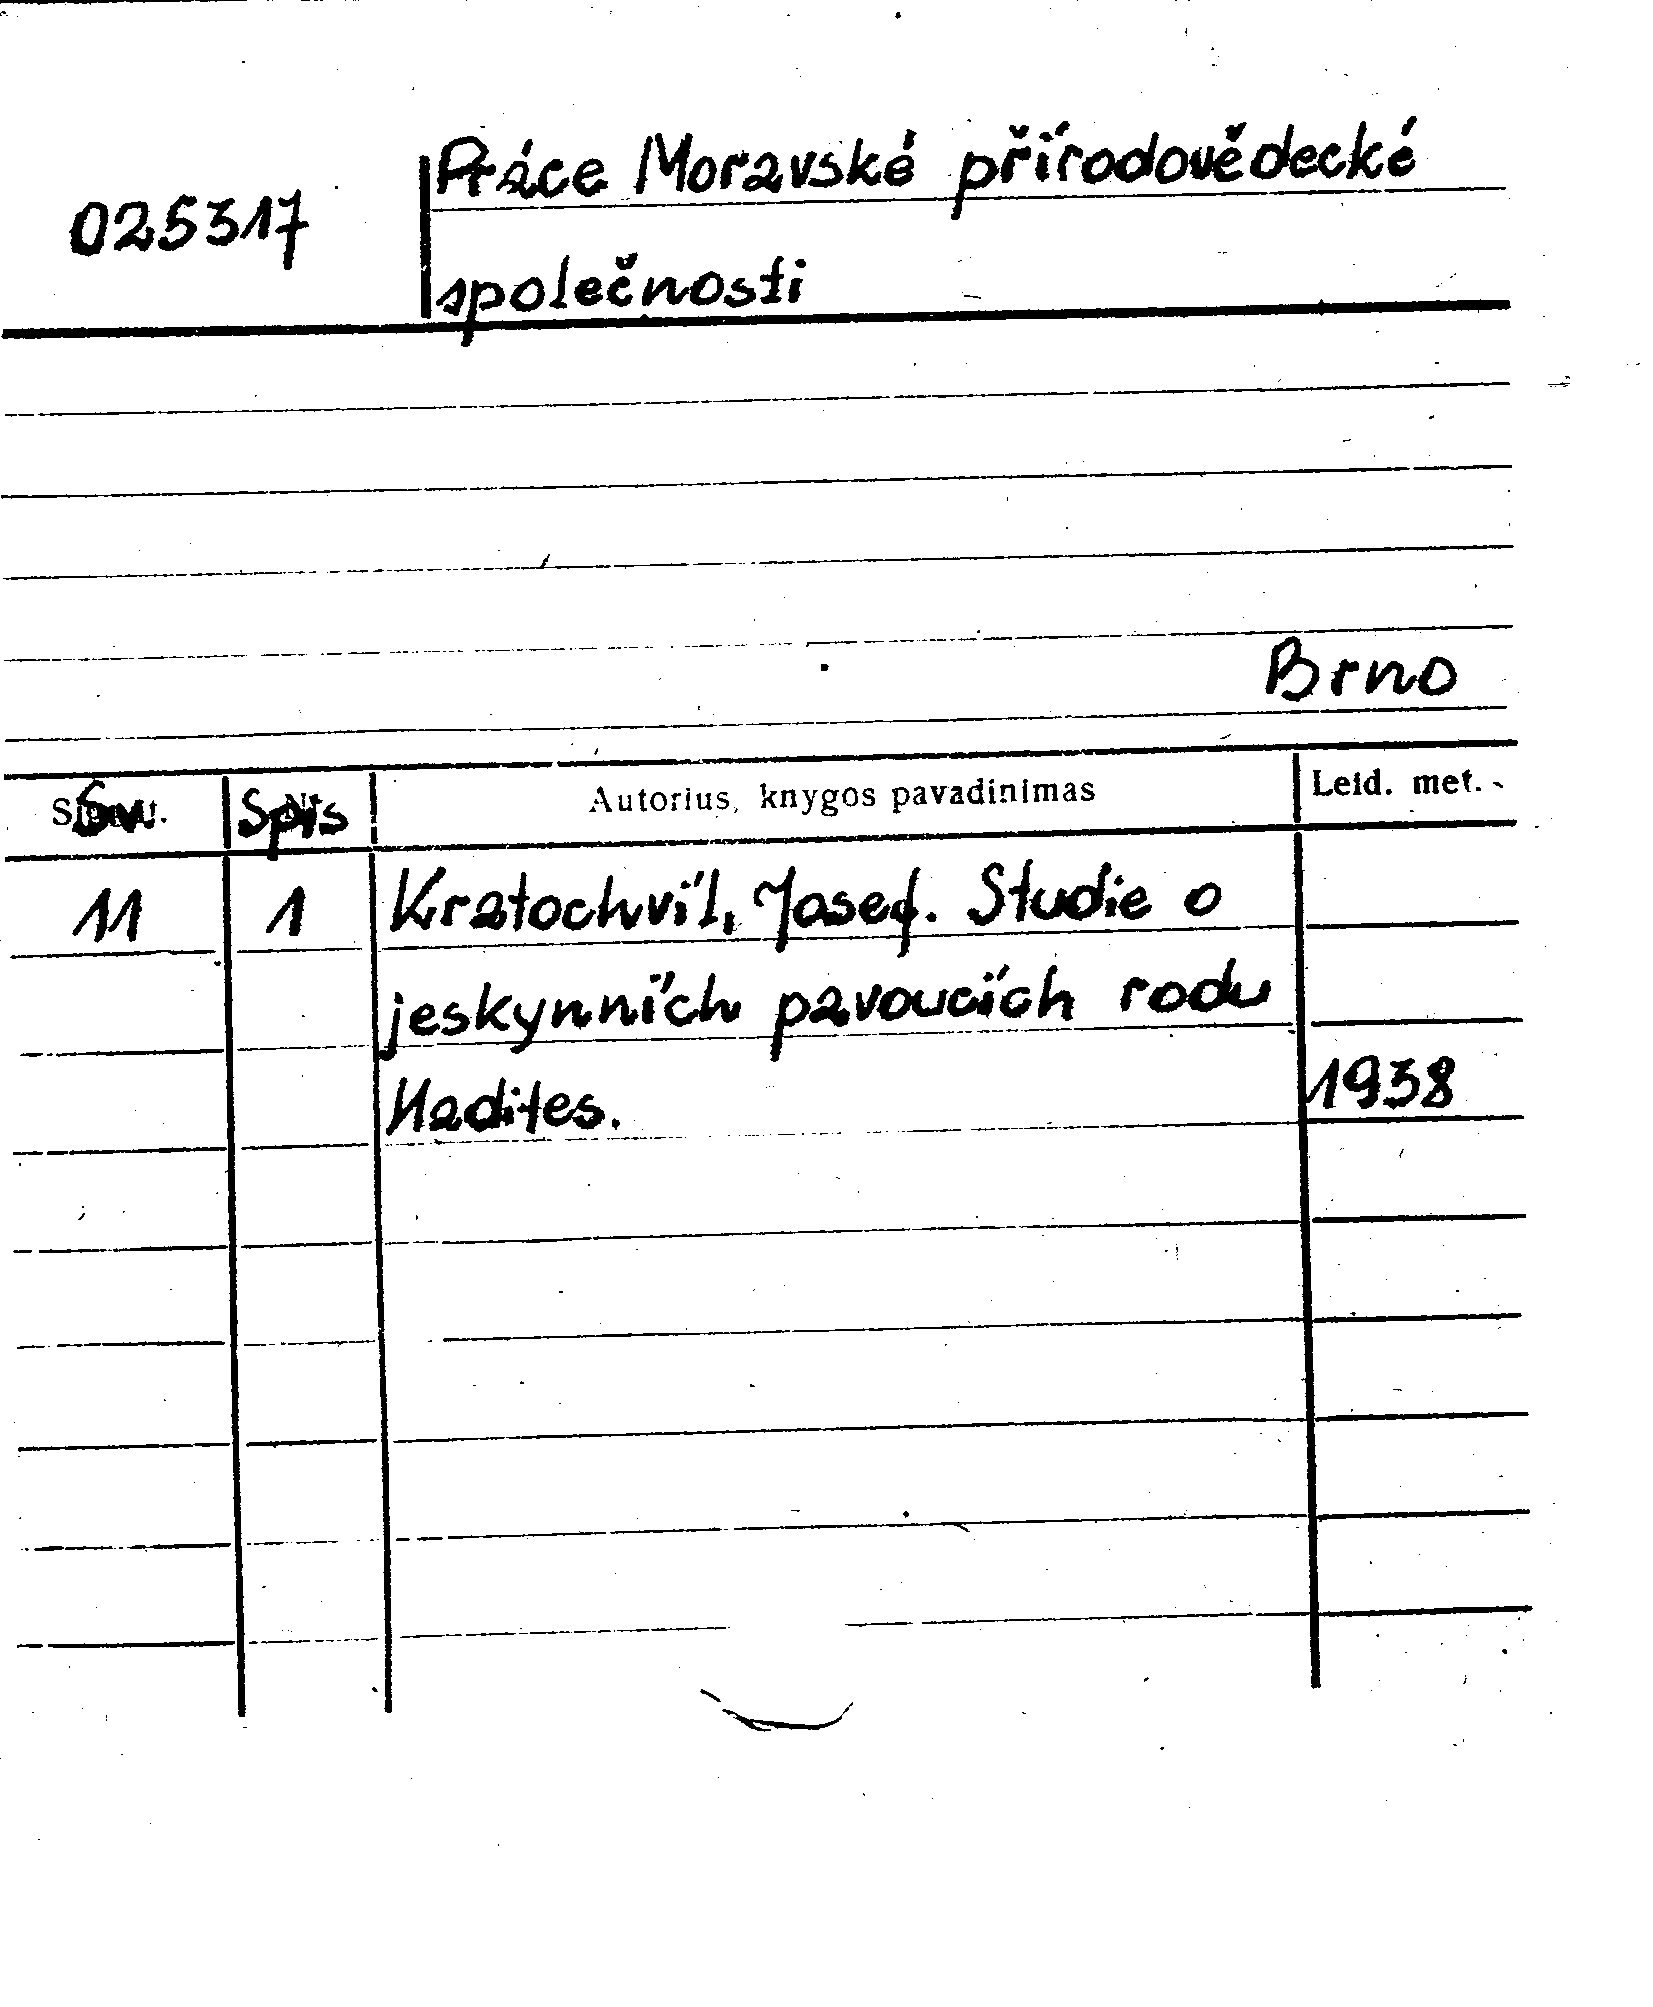 025317
Práce Moravské přírodovědecké
společnosti
Brno
Sv. Spis Autorius, knygos pavadinimas Leid. met.
11 1 Kratochvíl, Josef. Studie o
jeskynních pavoucích rodu
Hadites. 1938